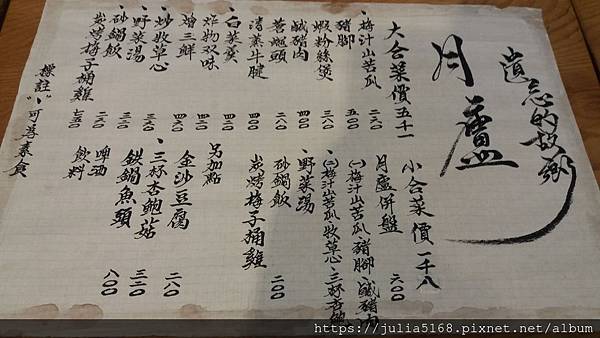 遺忘的故鄉
月廬
大合菜價五千一
、梅汁山苦瓜 二二〇
豬腳
蝦粉絲煲 三八〇
鹹豬肉 四〇〇
苦螺頭 二八〇
清蒸牛腱
、白菜羹 四二〇
炸物双味 四二〇
三鮮 四五〇
、炒牧草心
、野菜湯
砂鍋飯 二五〇
炭烤梅子桶雞 七五〇
標註"、"可為素食
小合菜價一千八
月廬併盤 六〇〇
(一)梅汁山苦瓜、豬腳、鹹豬肉
(二)梅汁山苦瓜、牧草心、三杯杏鮑
、野菜湯
砂鍋飯 二〇〇
炭烤梅子桶雞
另加點
金沙豆腐 二八〇
、三杯杏鮑菇 三二〇
鐵鍋魚頭 八〇〇
啤酒
飲料
https://julia5168.pixnet.net/album